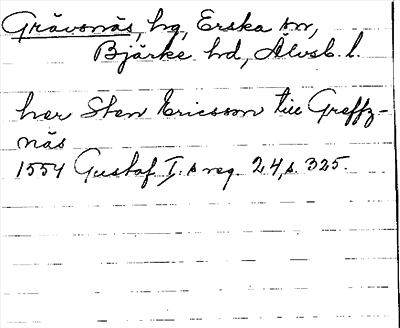 Grävsnäs, hg, Erska sn,
Bjärke hd, Älvsb. l.
her Sten Ericsson till Greffz-
näs
1554 Gustaf I. s reg. 24, s. 325.